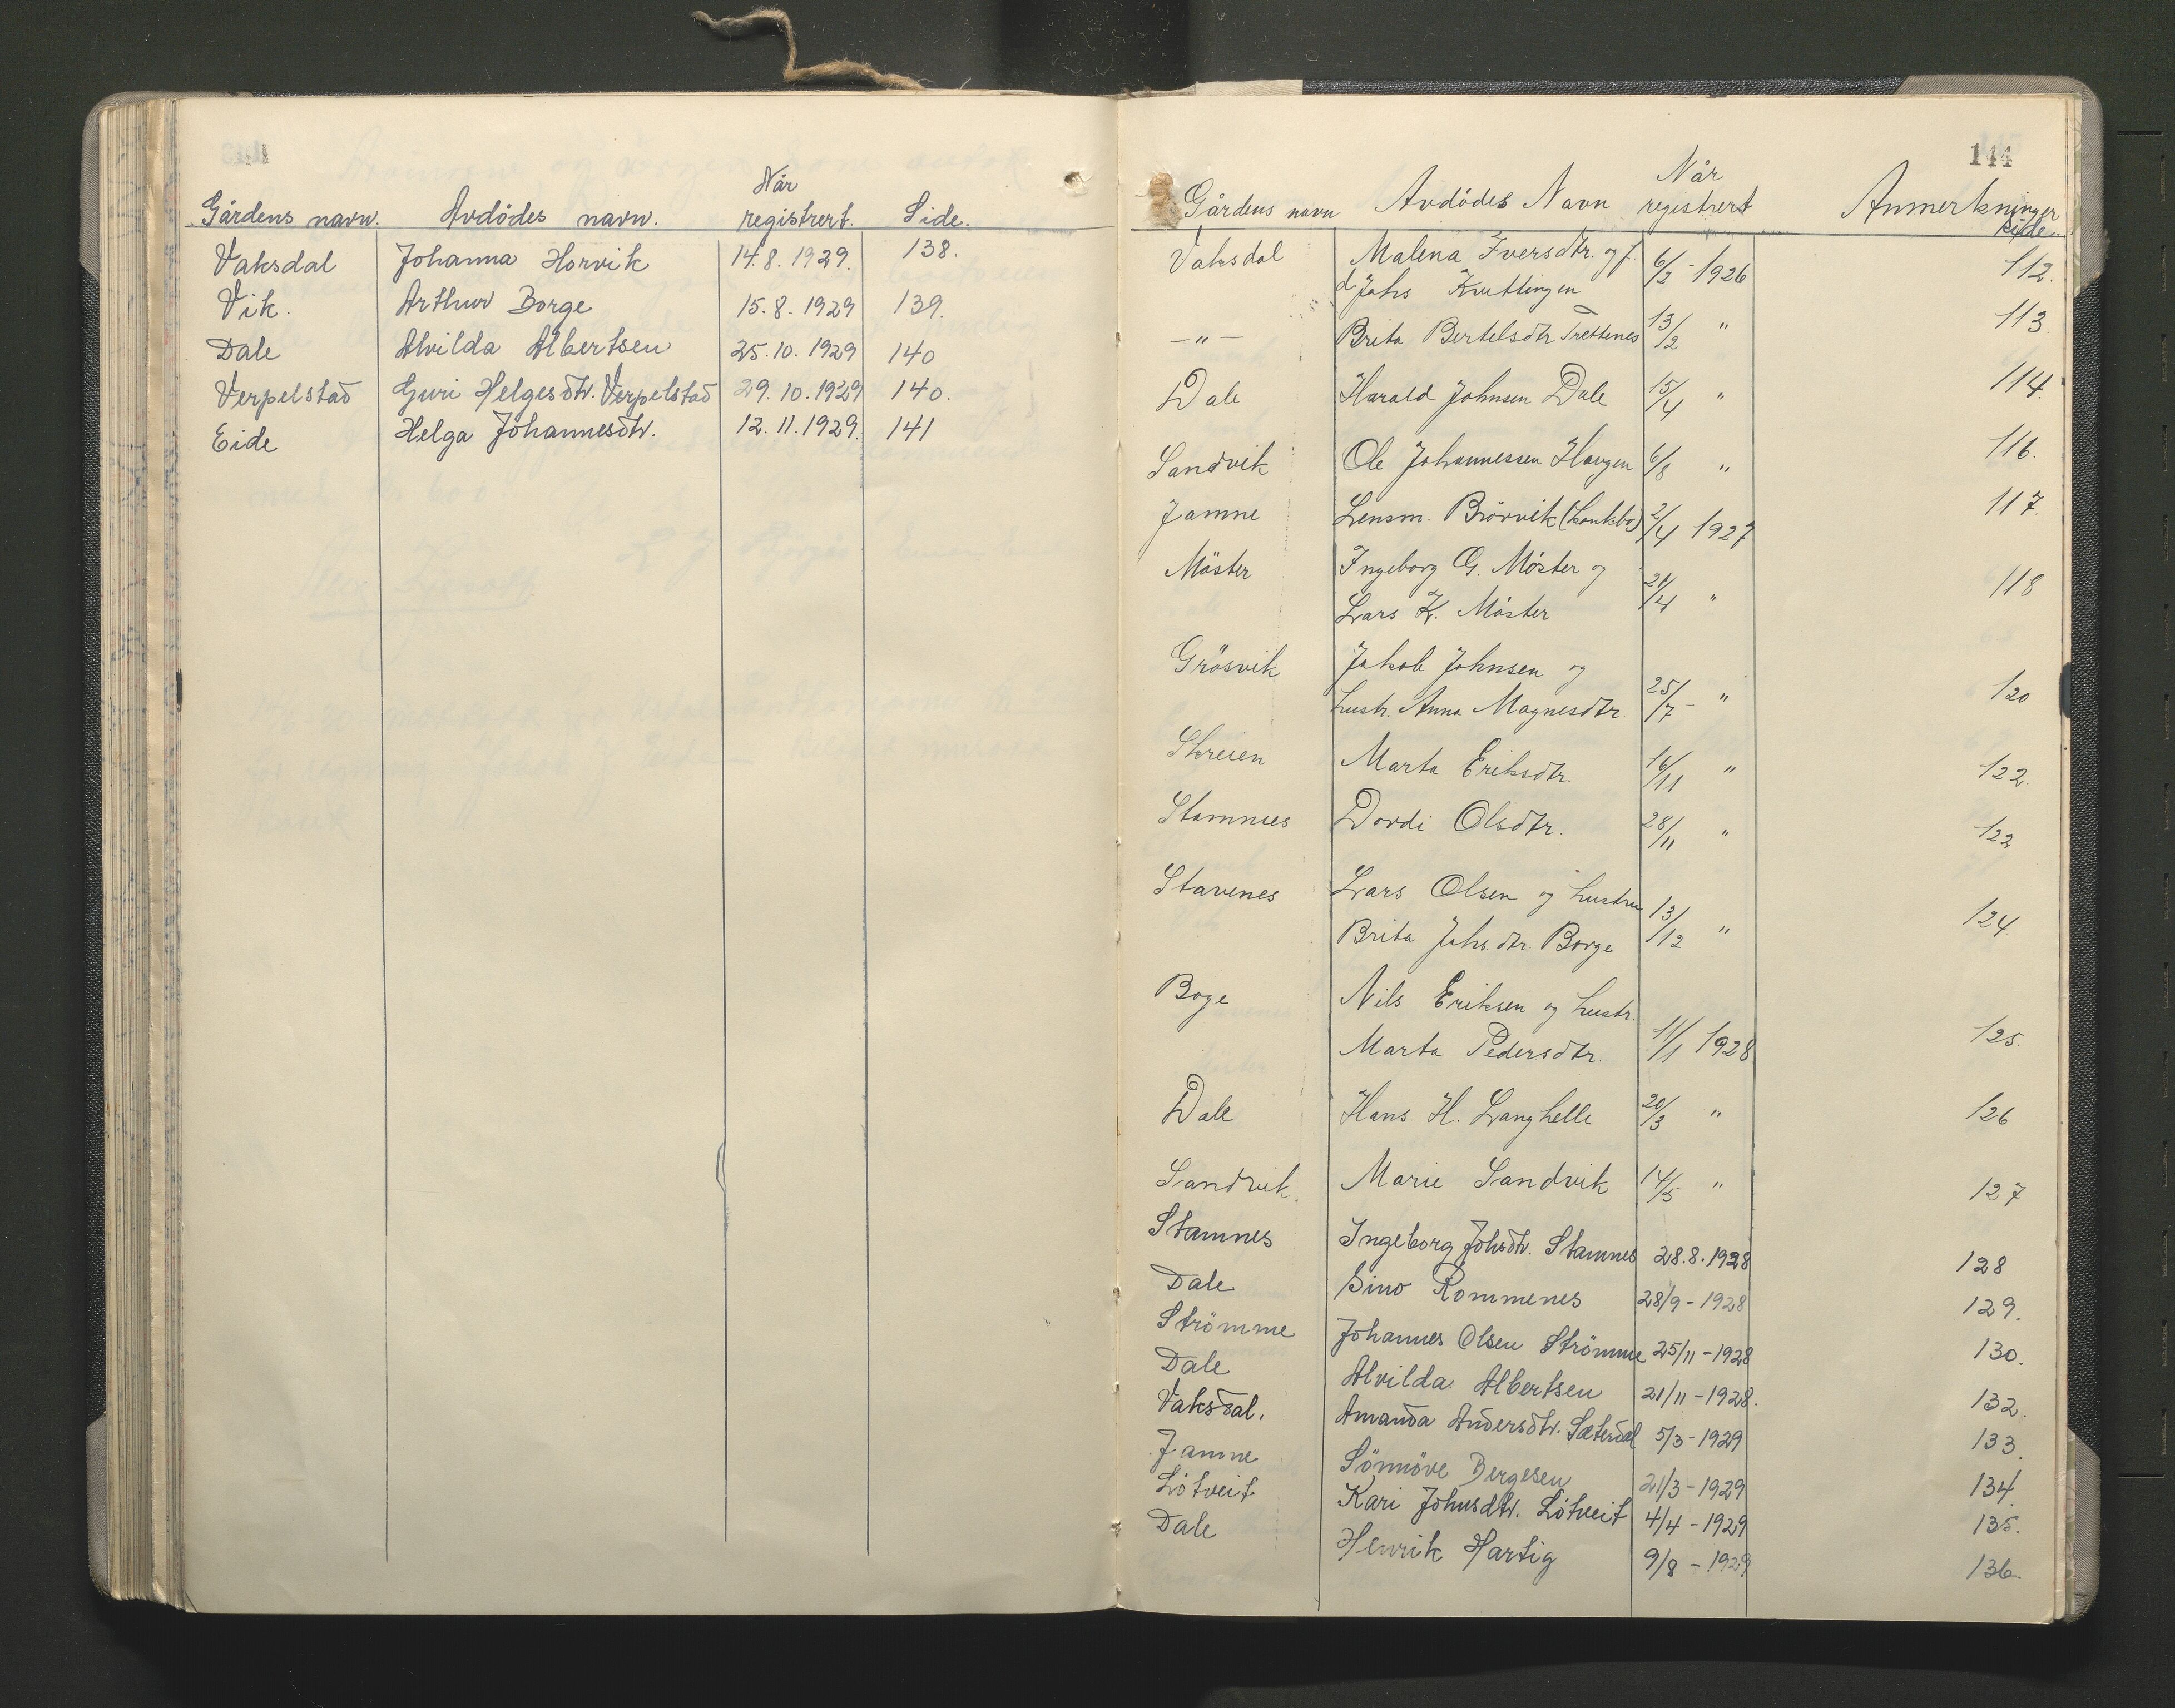 Gårdens navn. Avdödes navn. Når registrert. Side.
Vaksdal Johanna Horvik 14.8.1929. 138.
Vik. Arthur Borge 15.8.1929 139.
Dale Alvilda Albertsen 25.10.1929 140
Verpelstad Guri Helgesdtr. Verpelstad 29.10.1929 140.
Eide Helga Johannesdtr. 12.11.1929. 141
144
Gårdens navn Avdödes Navn Når registrert Anmerkninger
Side.
Vaksdal Malena Iversdtr. og f.
d. Johs 6/2 - 1926 112.
-"- Brita Bertelsdtr Trettenes 13/2 " 113.
Dale Harald Johnsen Dale 15/4 " 114.
Sandvik Ole Johannessen Haugen 6/8 " 116.
Jamne Lensm. Brörvik 2/4 1927 117.
Möster Ingeborg G. Möster og
Lars K. Möster 21/4 " 118
Grösvik Jakob Johnsen og
hustr. Anna Magnesdtr. 25/7 - " 120
Skreien Marta Eriksdtr. 16/11 " 122.
Stamnes Dordi Olsdtr. 28/11 " 122
Stavenes Lars Olsen og hustru
Brita Johs.dtr. Borge 13/12 " 124.
Boge Nils Eriksen og hustr.
Marta Pedersdtr. 11/1 1928 125.
Dale Hans H. Langhelle 20/3 " 126
Sandvik. Marie Sandvik 14/5 " 127
Stamnes Ingeborg Johsdtr. Stamnes 28.8.1928 128
Dale Sino Rommenes 28/9 - 1928 129.
Strömme Johannes Olsen Strömme 25/11 - 1928 130.
Dale Alvilda Albertsen 21/11 - 1928. 132.
Vaksdal. Amanda Andersdtr. Sæterdal 5/3 - 1929 133.
Jamne Sönnöve Bergesen 21/3 - 1929 134.
Lötveit Kari Johnsdtr. Lötveit 4/4 - 1929 135.
Dale Henrik Hartig 9/8 - 1929 136.